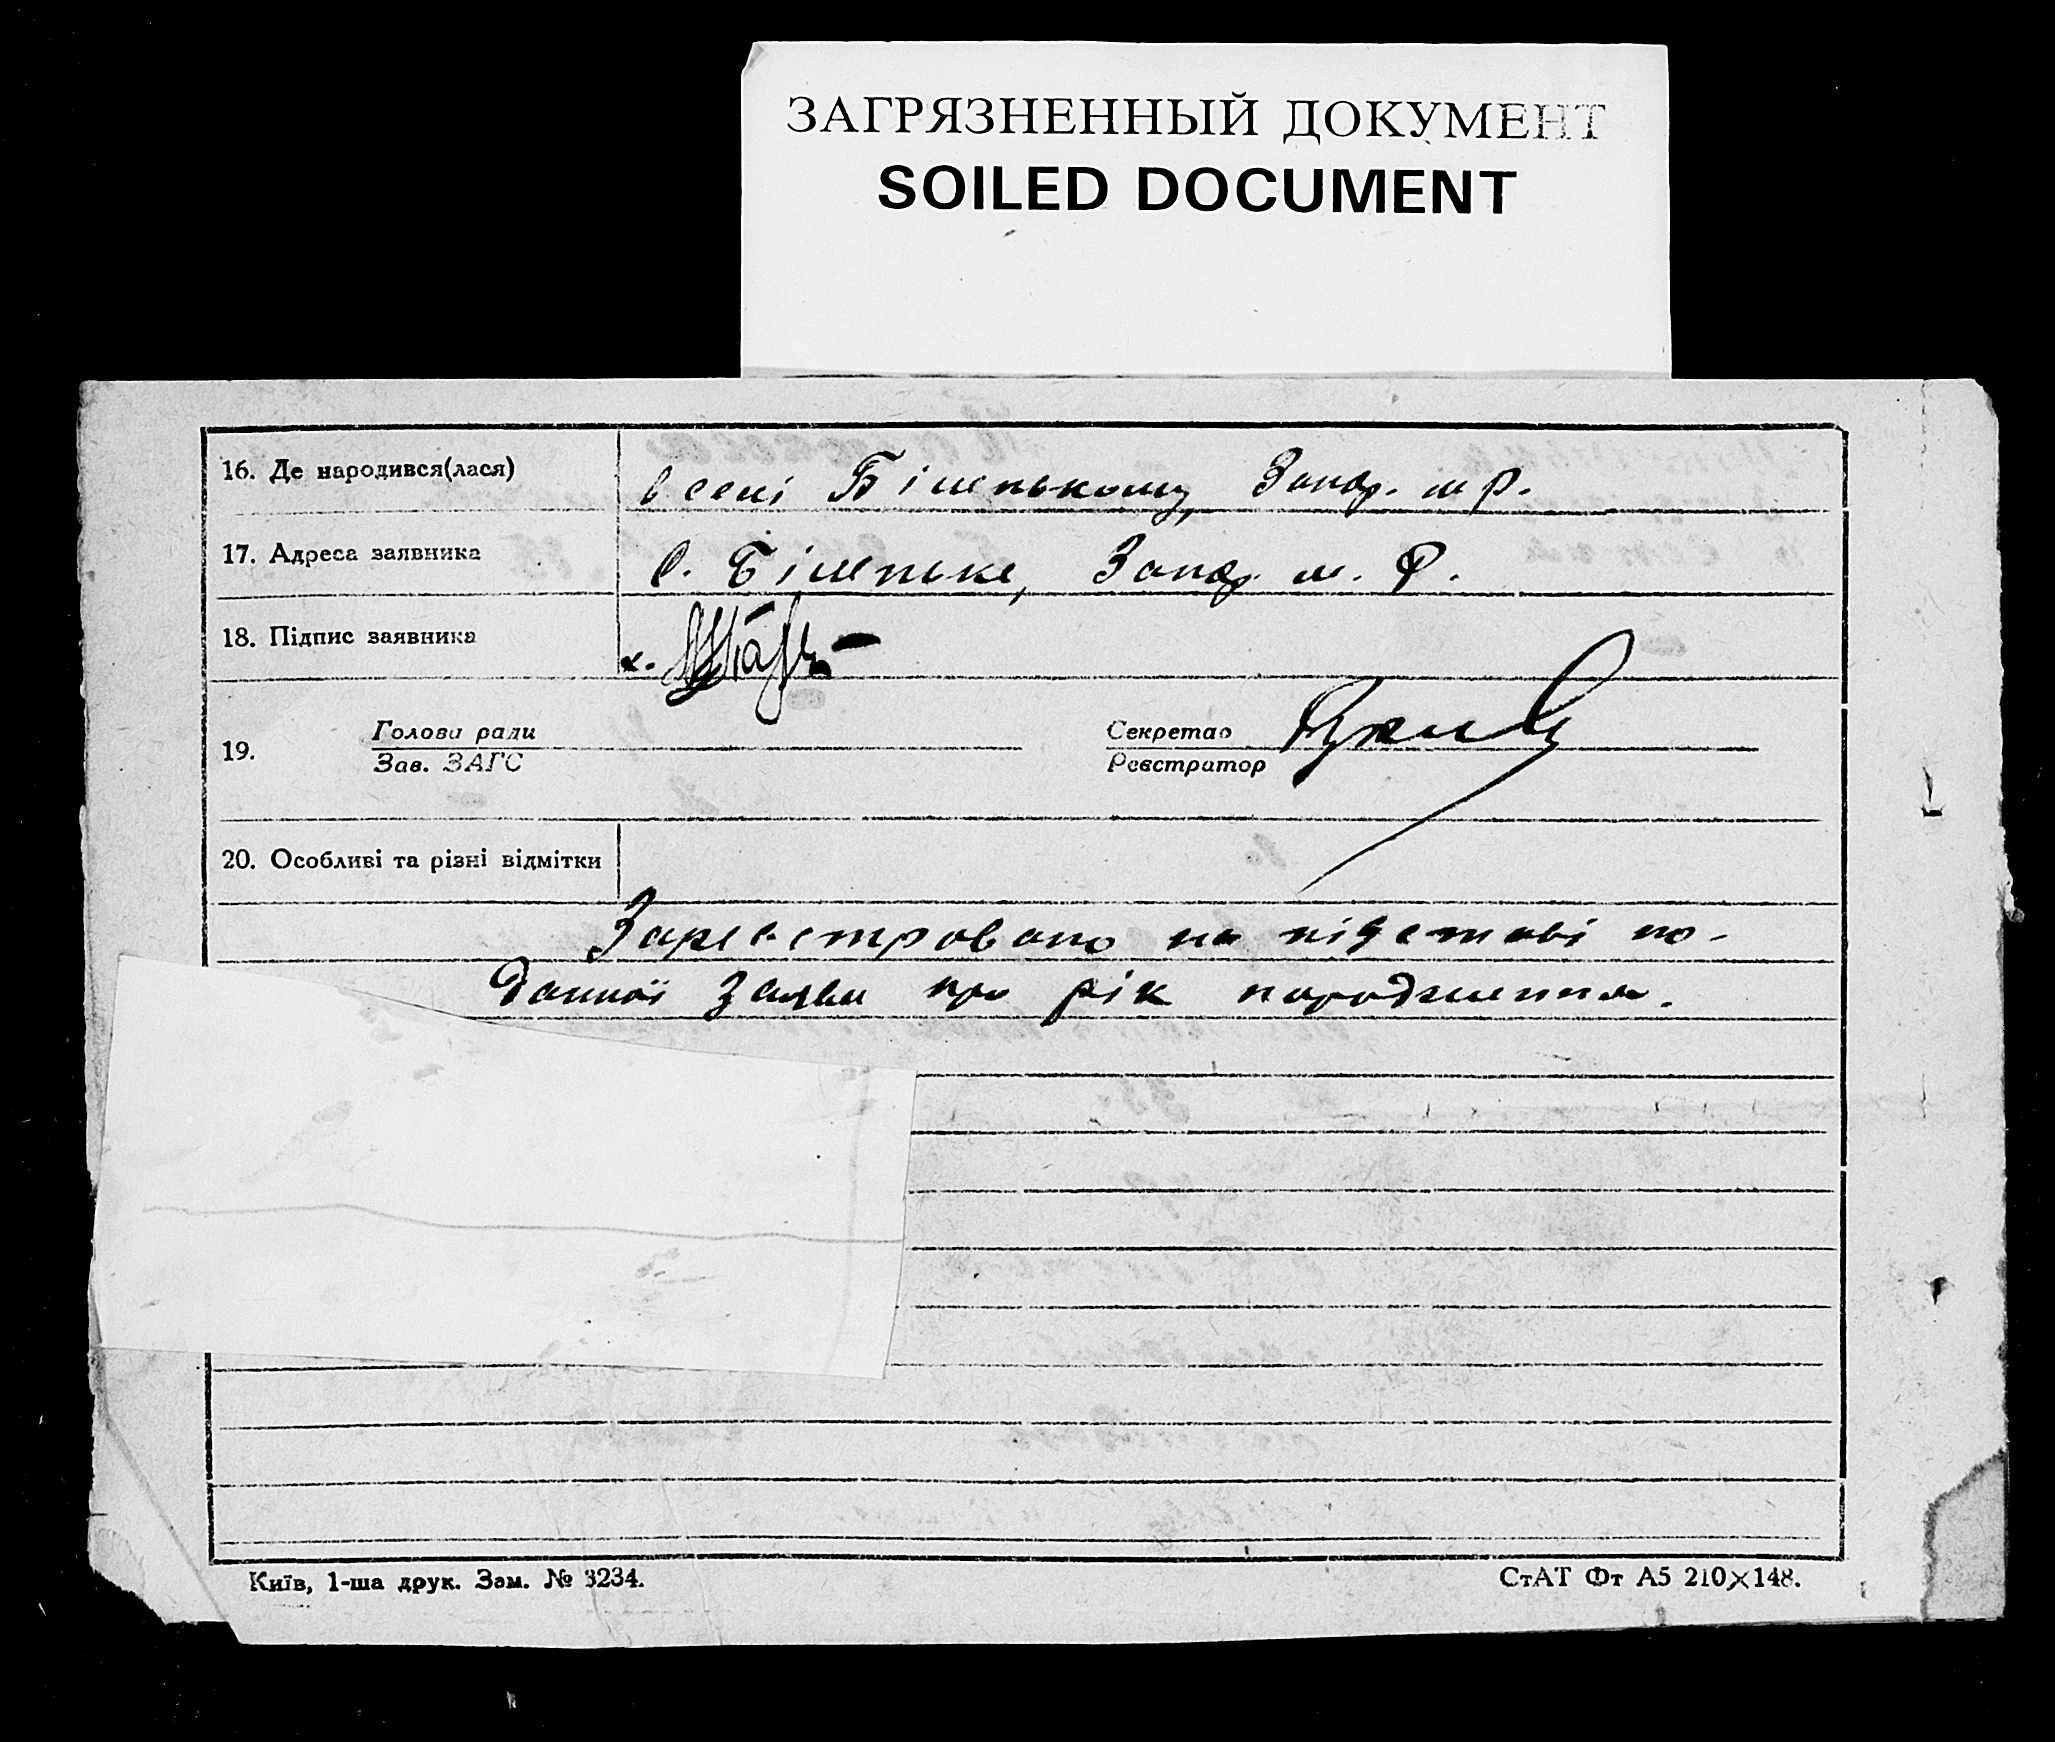 ЗАГРЯЗНЕННЫЙ ДОКУМЕНТ
SOILED DOCUMENT
16. Де народився(лася) в селі Біленькому, Запор. м р.
17. Адреса заявника с. Біленьке, Запор. м. Р.
18. Підпис заявника
19. Голова ради Секретар
Зав. ЗАГС Реєстратор
20. Особливі та різні відмітки
Зареєстровано на підставі по-
данної заяви про рік народження.
Київ, 1-ша друк. Зам. № 3234. СтАТ Фт А5 210×148.